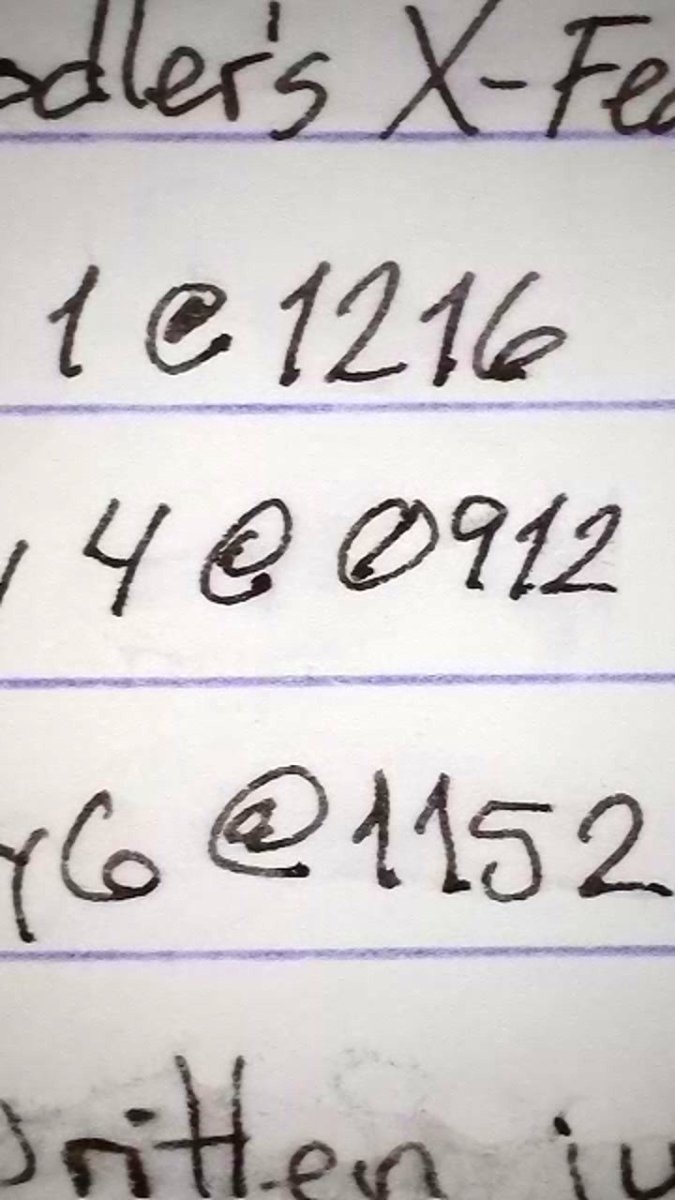 odler's X-Fea
1 @ 1216
4 @ 0912
y 6 @ 1152
ritten ju